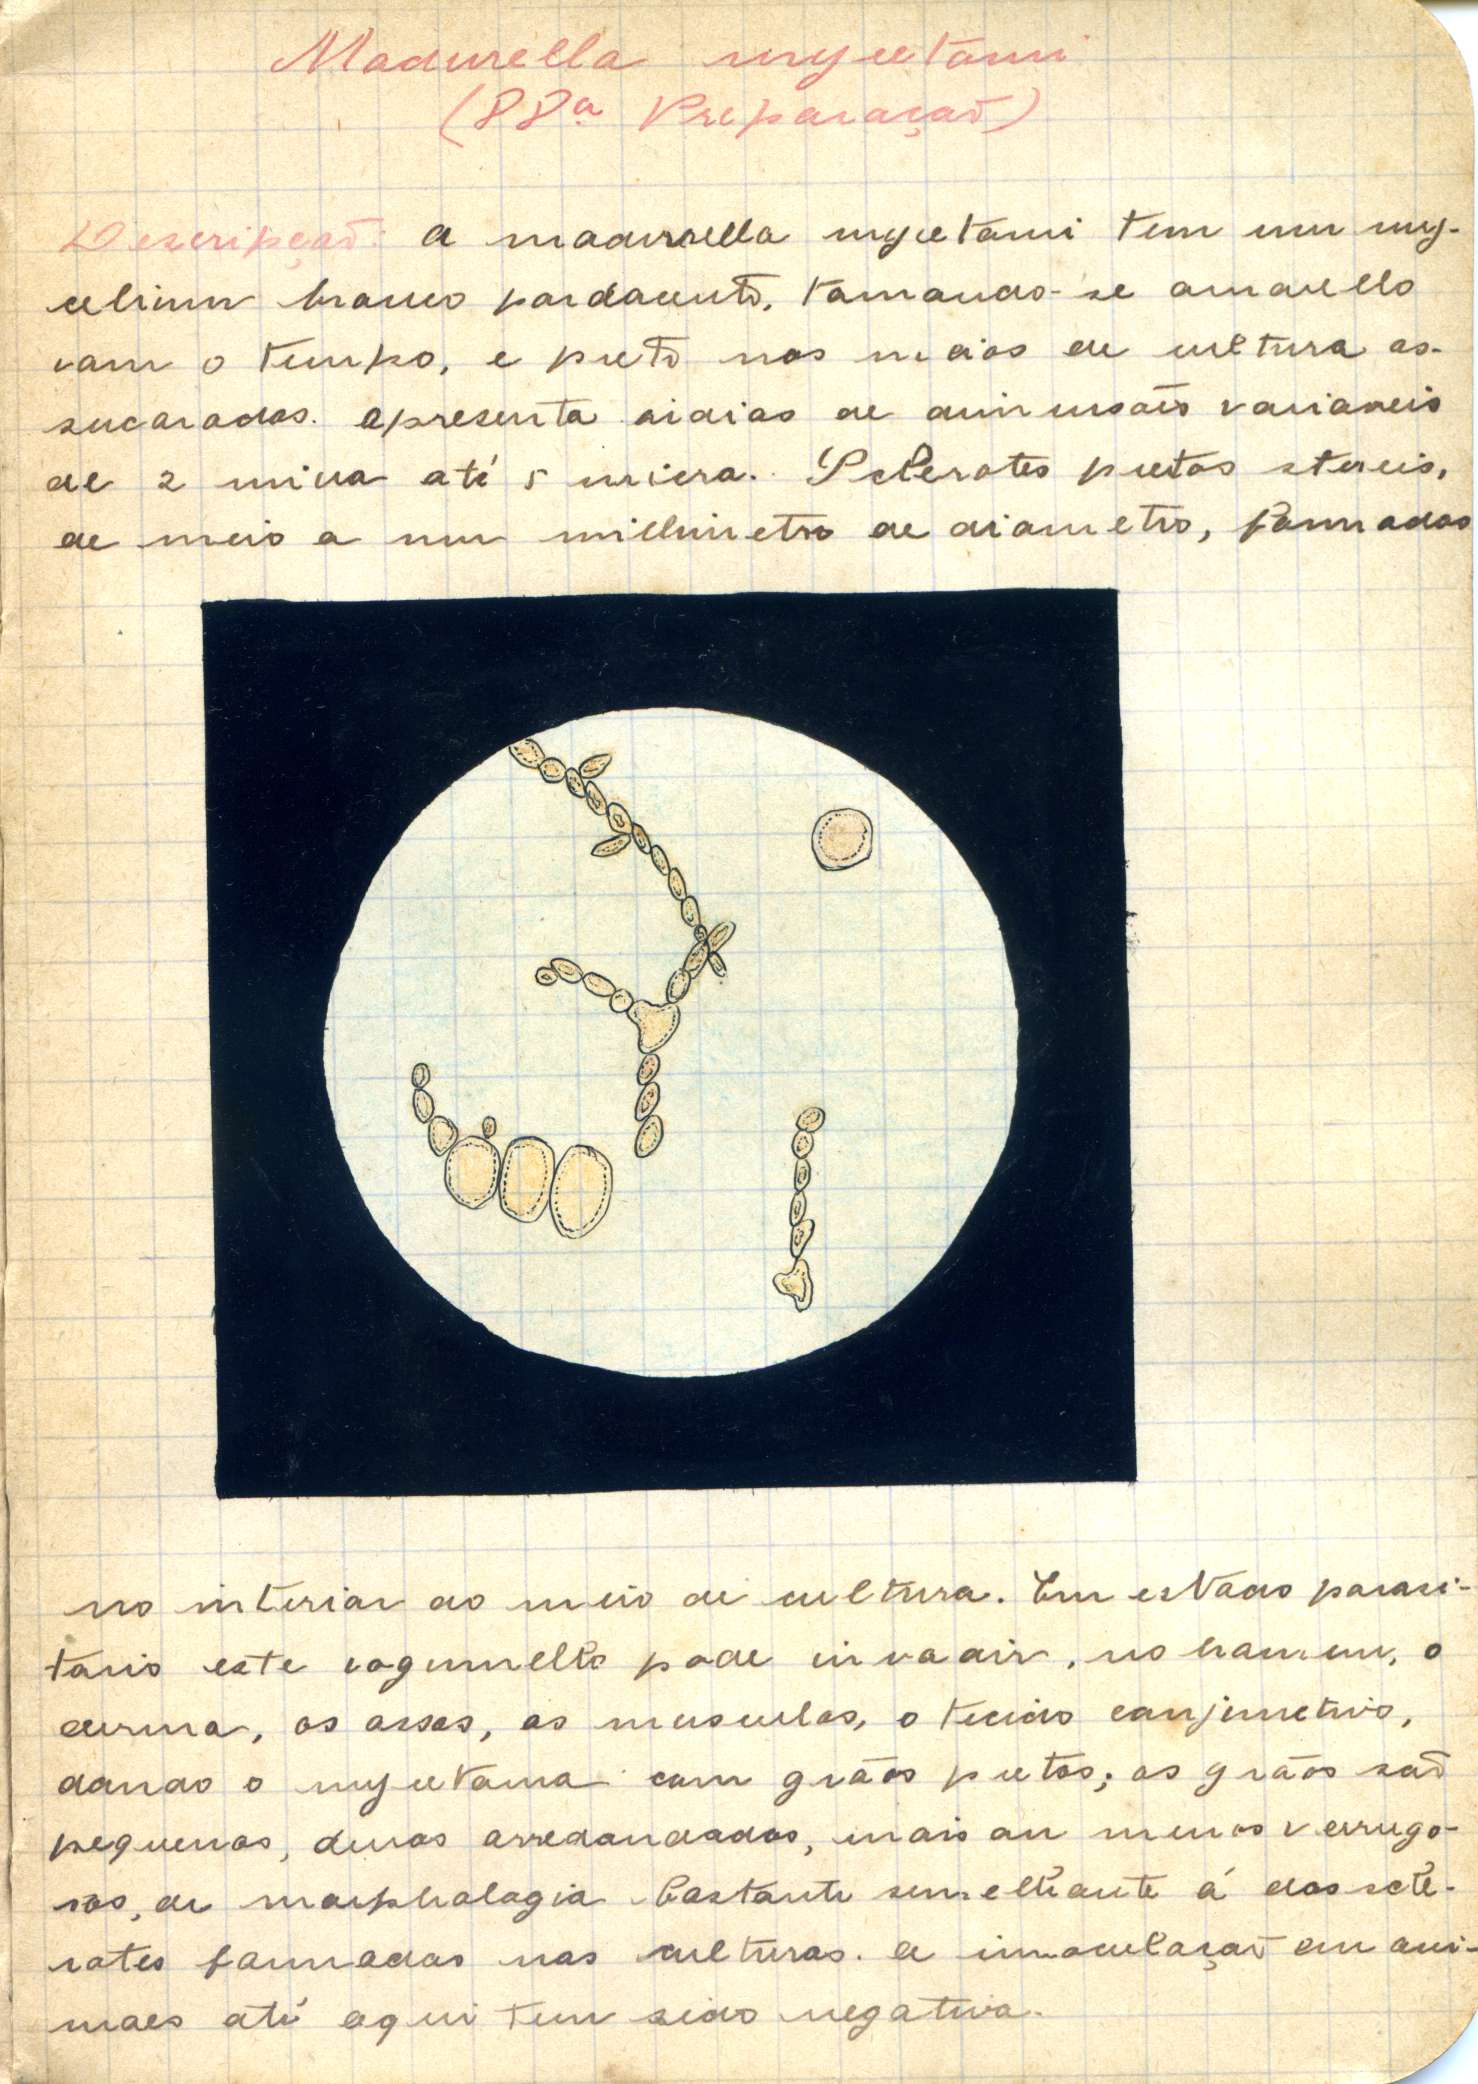 Madurella mycetomi
(88ª Preparação)
Descripção: A madurella mycetomi tem um my-
celium branco pardacento, tornando-se amarello
com o tempo, e preto nos meios de cultura as-
sucarados. Apresenta oidios de dimensões variaveis
de 2 micra até 5 micra. Sclerotes pretos stereis,
de meio a um millimetro de diametro, formados
no interior do meio de cultura. Em estado parasi-
tario este cogumello pode invadir, no homem, o
derma, os ossos, os musculos, o tecido conjunctivo,
dando o mycetoma com grãos pretos; os grãos são
pequenos, duros arredondados, mais ou menos verrugo-
sos, de morphologia bastante semelhante á dos scle-
rotes formados nas culturas. A innoculação em ani-
maes até aqui tem sido negativa.